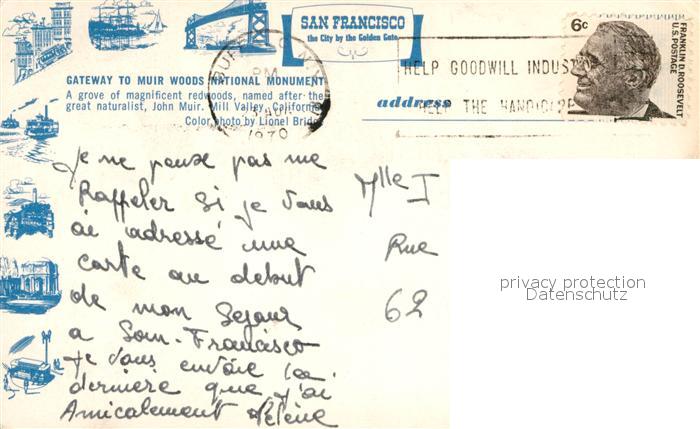 SAN FRANCISCO
the City by the Golden Gate
6c
FRANKLIN D. ROOSEVELT
U.S. POSTAGE
PM
1970
HELP GOODWILL INDUST
HELP THE HANDICAPP
GATEWAY TO MUIR WOODS NATIONAL MONUMENT
A grove of magnificent redwoods, named after the
great naturalist, John Muir. Mill Valley, California
Color photo by Lionel Bridge
address
Je ne pense pas me
Rappeler si je vous
ai adressé une
carte au debut
de mon Sejour
a San-Francisco
Je vous envoie la
dernière que j'ai
Amicalement Hélène
Mlle I
Rue
62
privacy protection
Datenschutz